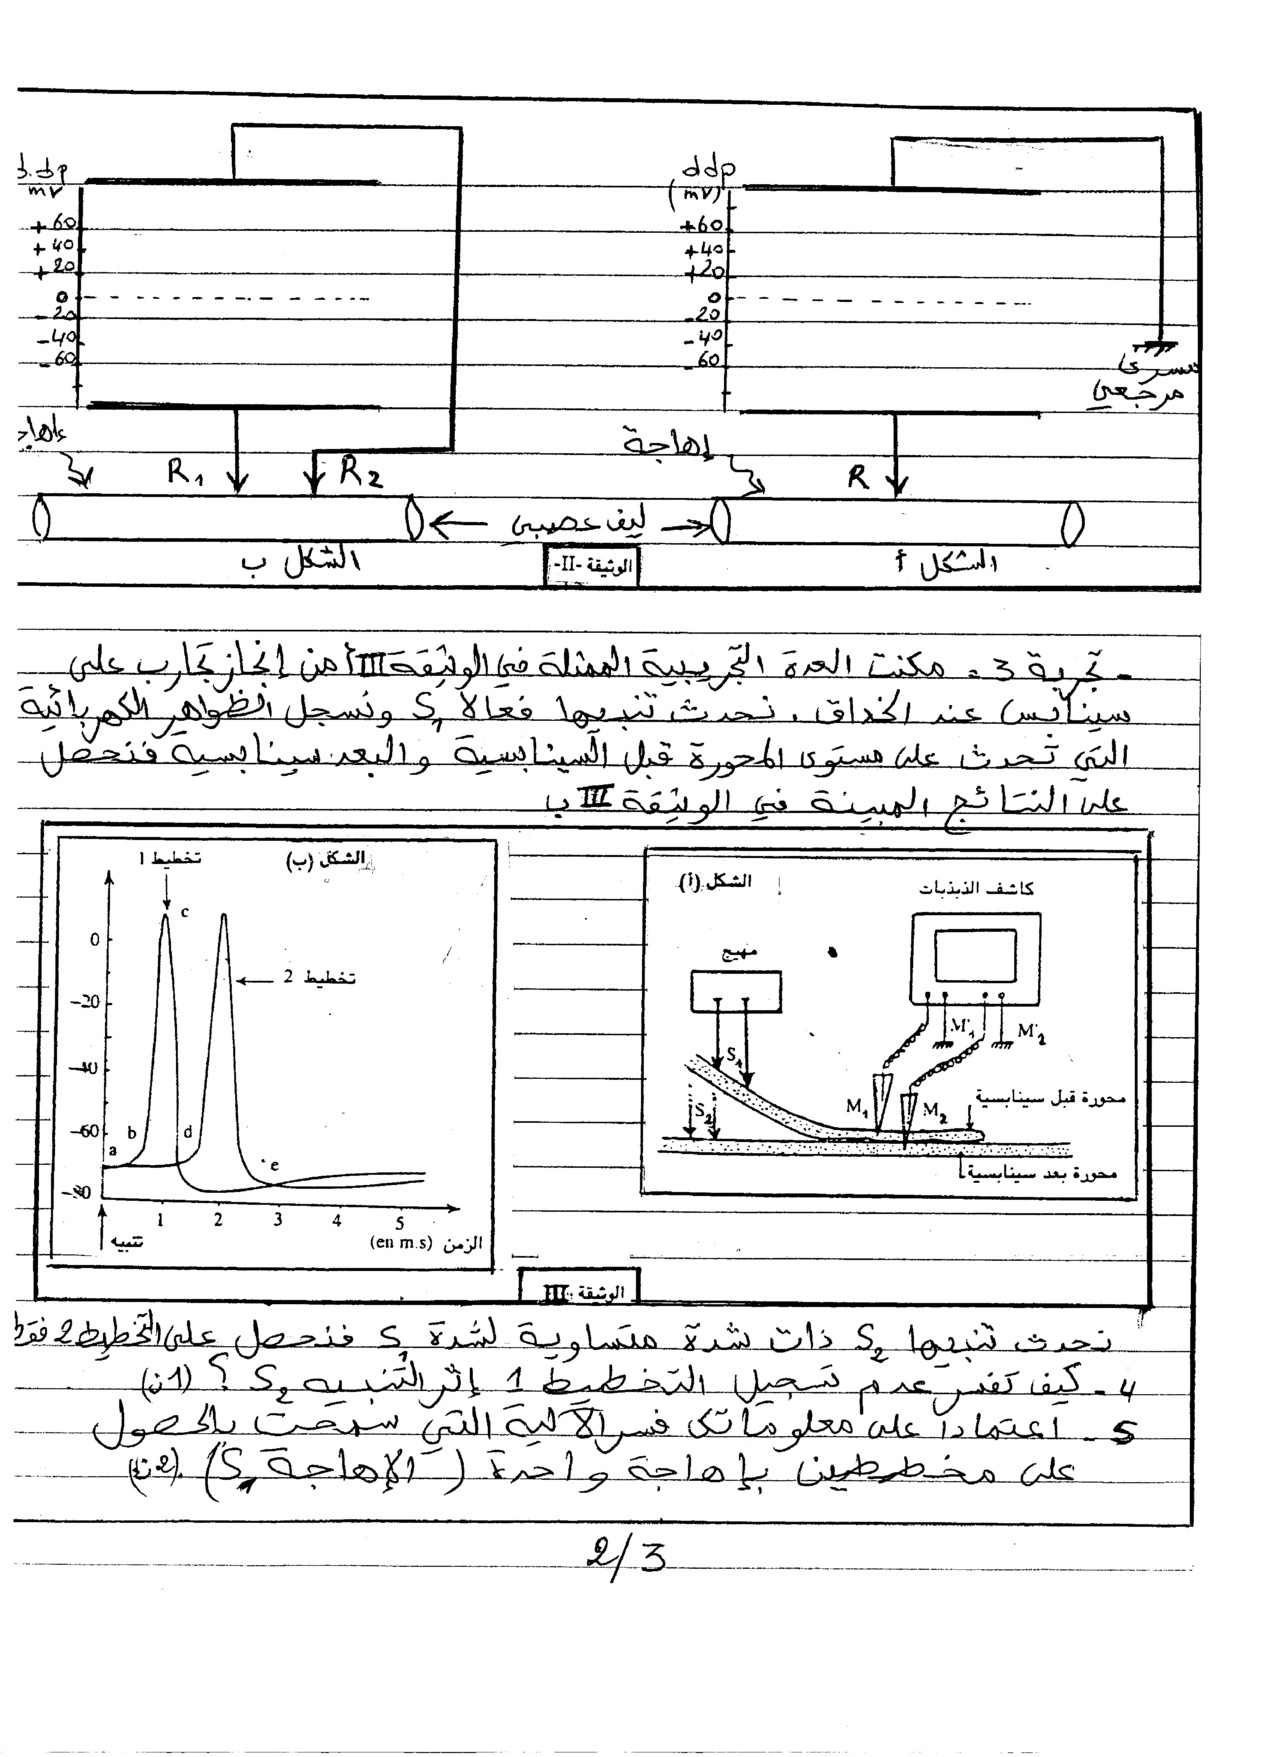 ddp
(mV)
+60
+40
+20
0
-20
-40
-60
مسرى
مرجعي
إهاجة
R
الشكل أ
d.dp
mV
+60
+40
+20
0
-20
-40
-60
R1
R2
ليف عصبي
الشكل ب
الوثيقة -II-
- تجربة 3 = مكنت العدة التجريبية الممثلة في الوثيقة III أ من إنجاز تجارب على
سينابس عند الخذاق. نحدث تنبيها فعالا S1 ونسجل الظواهر الكهربائية
التي تحدث على مستوى المحورة قبل السينابسية والبعد سينابسية فنحصل
على النتائج المبينة في الوثيقة III ب
الشكل (أ)
كاشف الذبذبات
مهيج
M'1
M'2
S1
S2
M1
M2
محورة قبل سينابسية
محورة بعد سينابسية
الشكل (ب)
تخطيط 1
تخطيط 2
0
-20
-40
-60
-80
a
b
c
d
e
1 2 3 4 5
تنبيه
الزمن (en m.s)
الوثيقة III
نحدث تنبيها S2 ذات شدة متساوية لشدة S1 فنحصل على التخطيط 2 فقط
4 - كيف تفسر عدم تسجيل التخطيط 1 إثر التنبيه S2 ؟ (1ن)
5 - اعتمادا على معلوماتك فسر الآلية التي سمحت بالحصول
على مخططين بإهاجة واحدة (الإهاجة S1). (2ن)
2/3